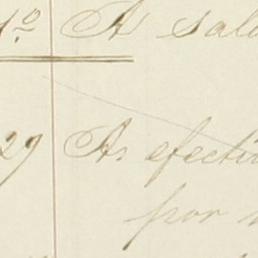 1º A Sal
29 Ar efecti
por